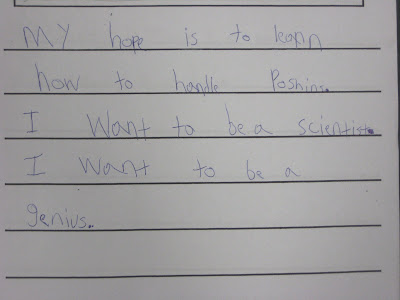 MY hope is to learn
how to handle Poshins.
I want to be a scientist.
I want to be a
genius.